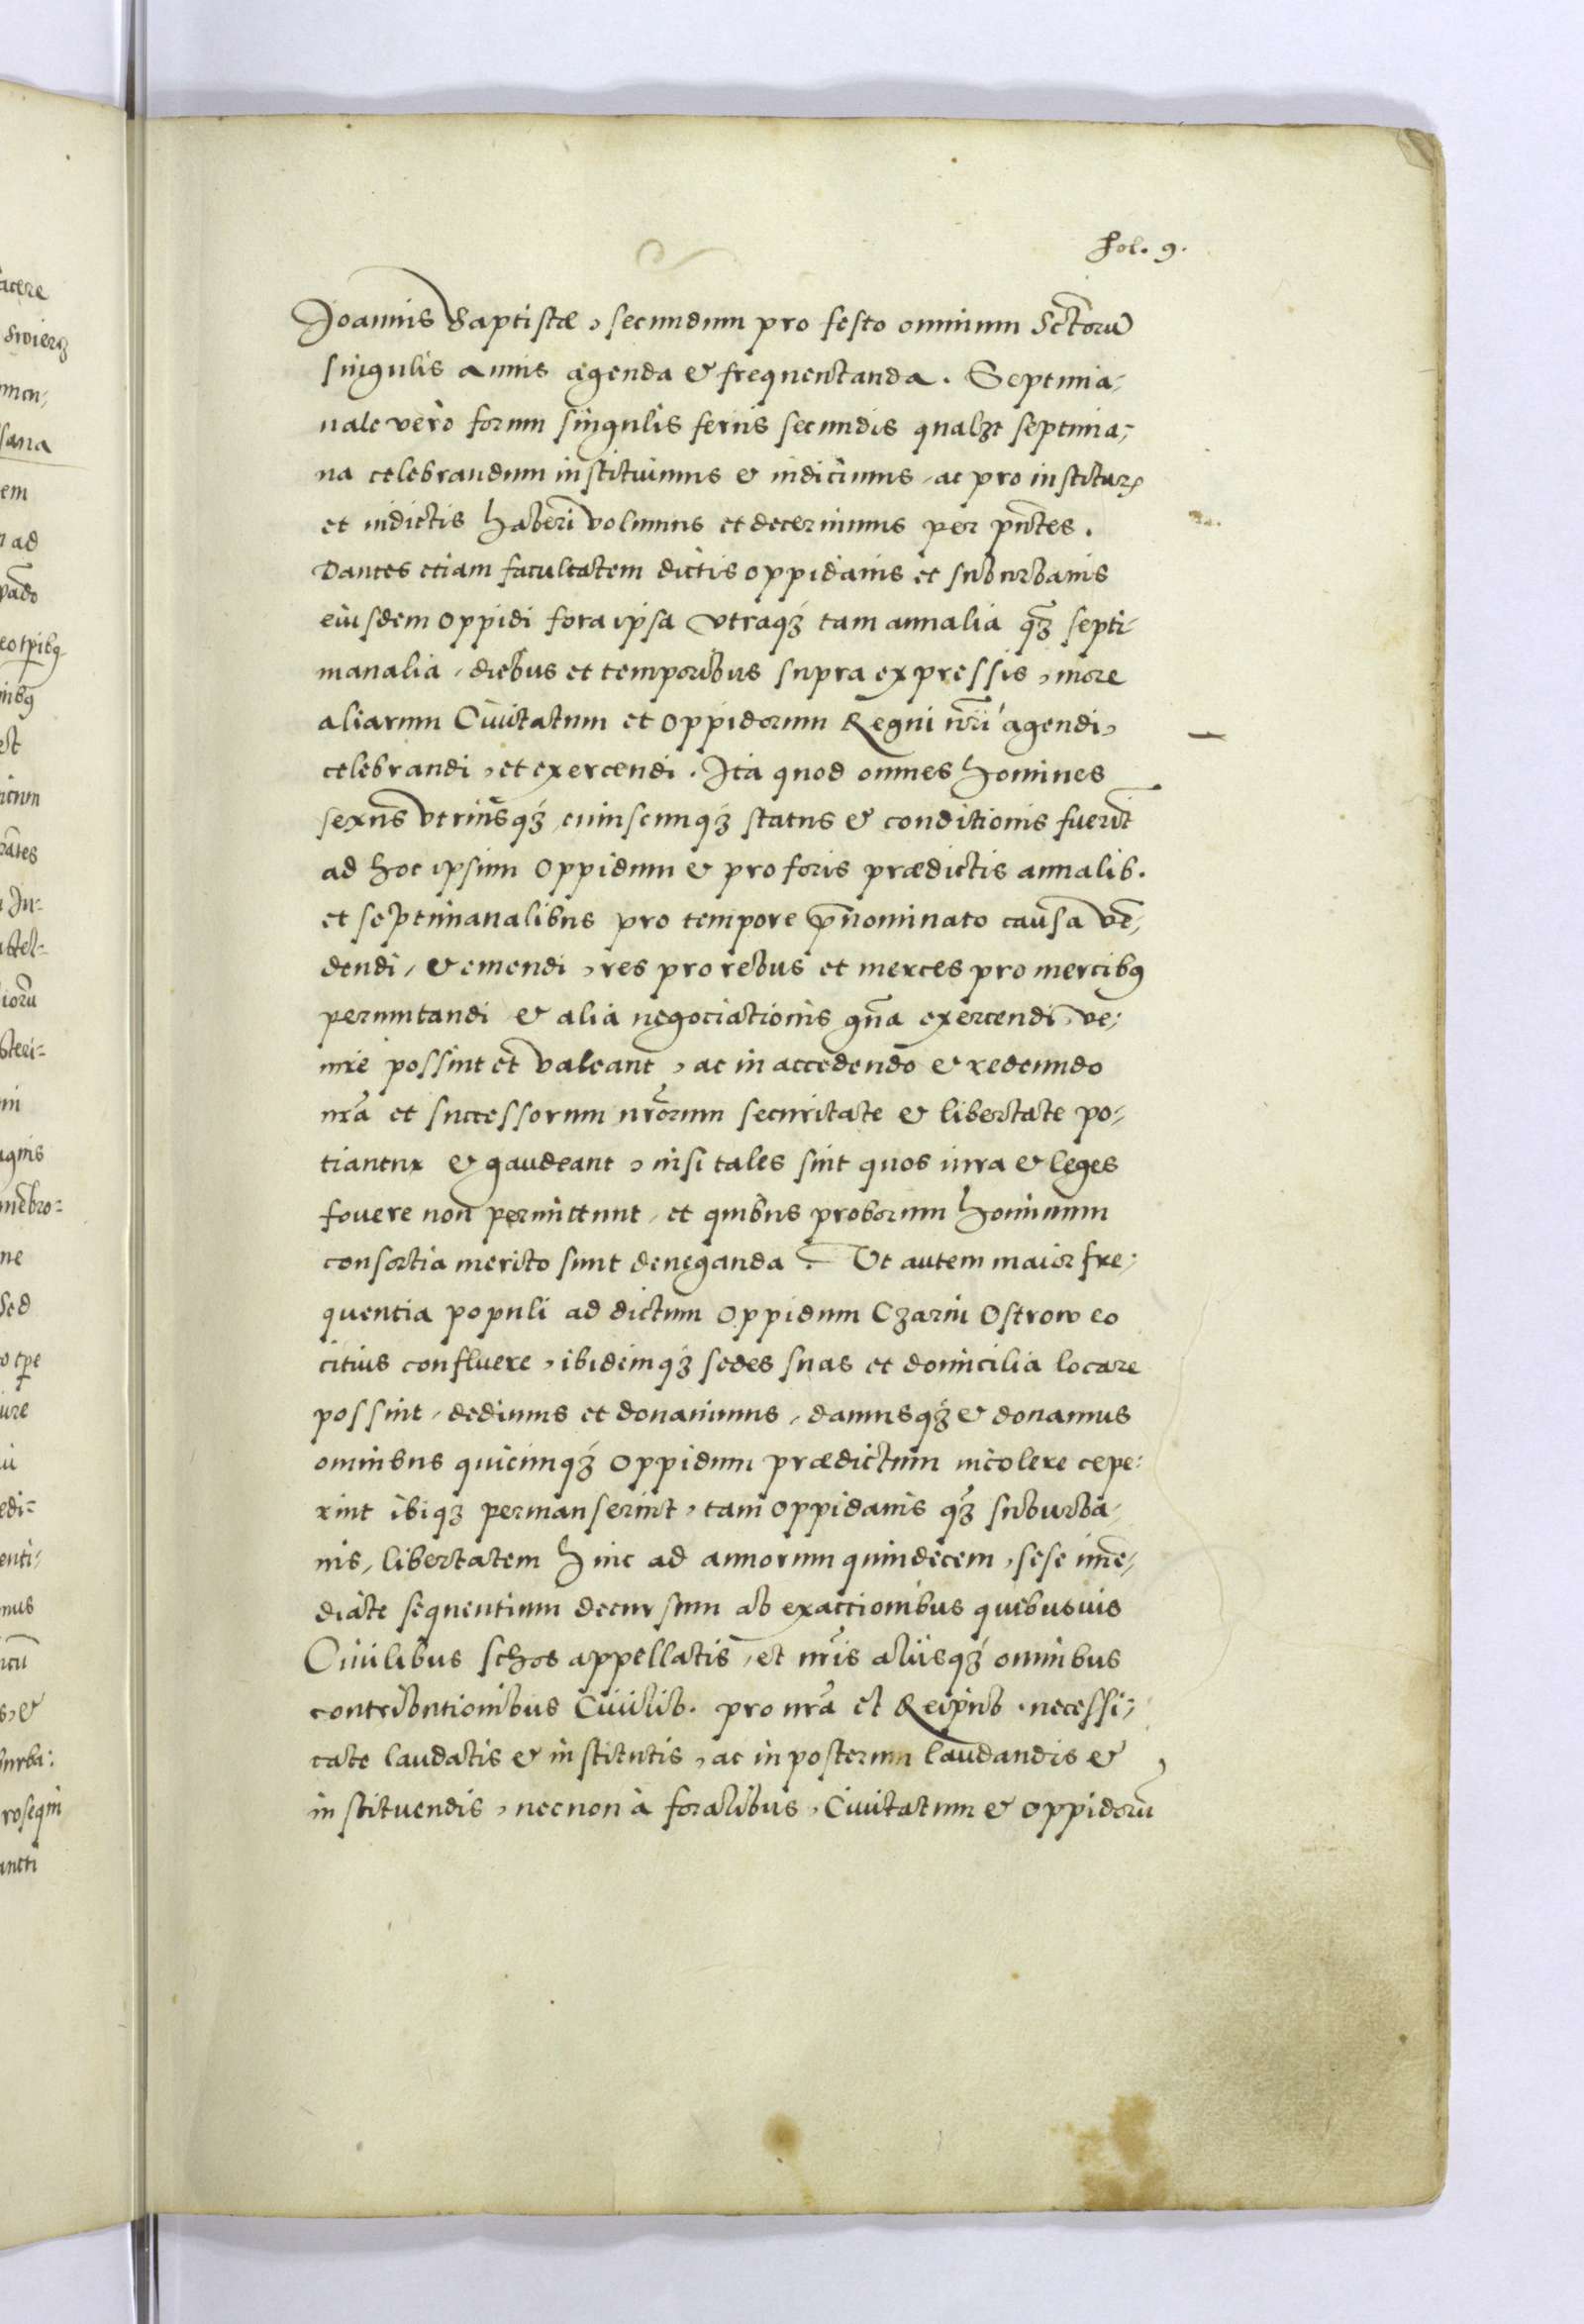 fol. 9.
Joannis Baptistæ, secundum pro festo omnium Sctorũ
singulis annis agenda & frequentanda. Septima-
nale vero forum singulis feriis secundis qualzt septima-
na celebrandum instituimus & indicimus, ac pro institutꝭ
et indictis haberi volumus et decernimus per pñtes.
Dantes etiam facultatem dictis oppidanis et suburbanis
eiusdem oppidi fora ipsa vtraqꝫ tam annalia qꝫ̃ septi-
manalia, diebus et temporibus supra expressis, more
aliarum Ciuitatum et oppidorum Regni nr̃i agendi,
celebrandi, et exercendi. Ita quod omnes homines
sexus vtriusqꝫ cuiuscunqꝫ status & conditionis fuerĩt
ad hoc ipsum oppidum & pro foris prædictis annalib.
et septimanalibus pro tempore p̃nominato causa vẽ-
dendi, & emendi, res pro rebus et merces pro mercibꝯ
permutandi & alia negociationis gñа exercendi, ve-
nire possint et valeant, ac in accedendo & redeundo
nr̃a et successorum nr̃orum securitate & libertate po-
tiantur & gaudeant, nisi tales sint quos iura & leges
fouere non permittunt, et quibus proborum hominum
consortia merito sunt deneganda. Vt autem maior fre-
quentia populi ad dictum oppidum Czarni Ostrow eo
citius confluere, ibidemqꝫ sedes suas et domicilia locare
possint, dedimus et donauimus, damusqꝫ & donamus
omnibus quicunqꝫ oppidum prædictum incolere cepe-
rint ibiqꝫ permanserint, tam oppidanis qꝫ̃ suburba-
nis, libertatem hinc ad annorum quindecem, sese im̃e-
diate sequentium decursum ab exactionibus quibusuis
Ciuilibus schos appellatis, et nr̃is aliisqꝫ omnibus
contributionibus Ciuilib. pro nr̃a et Reipub. necessi-
tate laudatis & institutis, ac in posterum laudandis &
instituendis, necnon à foralibus, Ciuitatum & oppidorũ